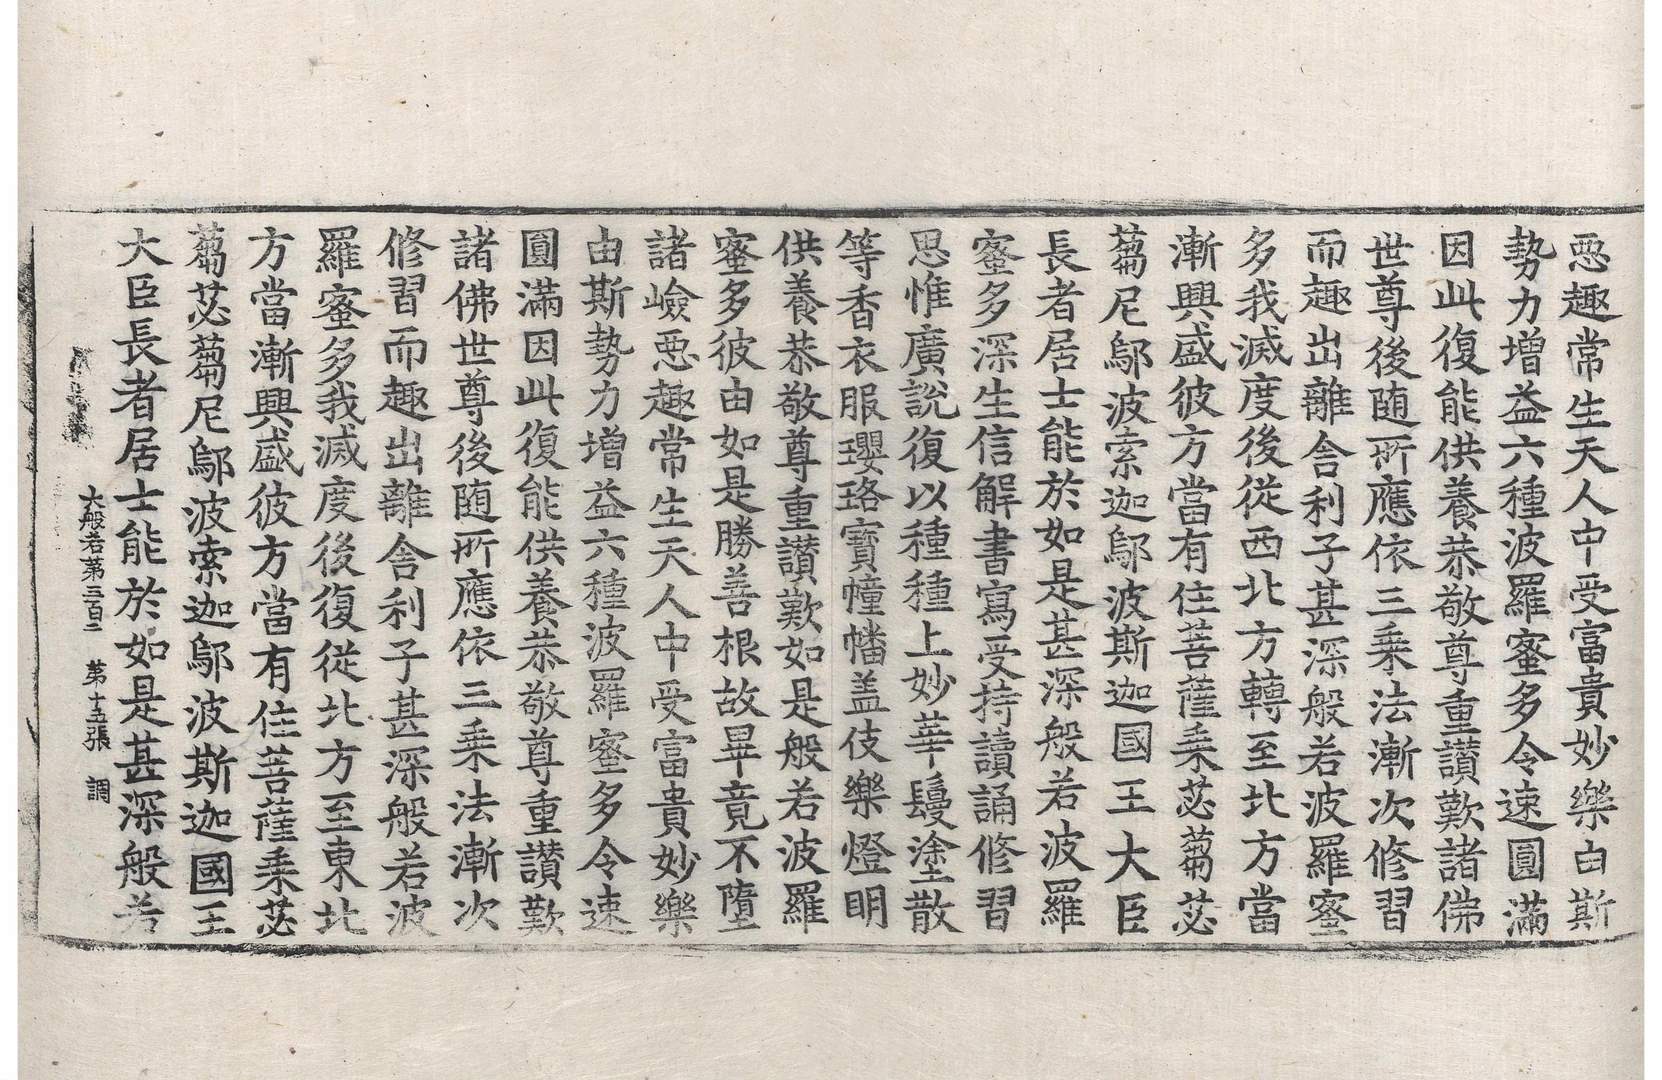 惡趣常生天人中受富貴妙樂由斯
勢力增益六種波羅蜜多令速圓滿
因此復能供養恭敬尊重讃歎諸佛
世尊後随所應依三乘法漸次修習
而趣出離舍利子甚深般若波羅蜜
多我滅度後從西北方轉至北方當
漸興盛彼方當有住菩薩乘苾蒭苾
蒭尼鄔波索迦鄔波斯迦國王大臣
長者居士能於如是甚深般若波羅
蜜多深生信解書寫受持讀誦修習
思惟廣說復以種種上妙華鬘塗散
等香衣服瓔珞寶幢幡盖伎樂燈明
供養恭敬尊重讃歎如是般若波羅
蜜多彼由如是勝善根故畢竟不墮
諸嶮惡趣常生天人中受富貴妙樂
由斯勢力增益六種波羅蜜多令速
圓滿因此復能供養恭敬尊重讃歎
諸佛世尊後随所應依三乘法漸次
修習而趣出離舍利子甚深般若波
羅蜜多我滅度後復從北方至東北
方當漸興盛彼方當有住菩薩乘苾
蒭苾蒭尼鄔波索迦鄔波斯迦國王
大臣長者居士能於如是甚深般若
大般若第三百二 第十五張 調